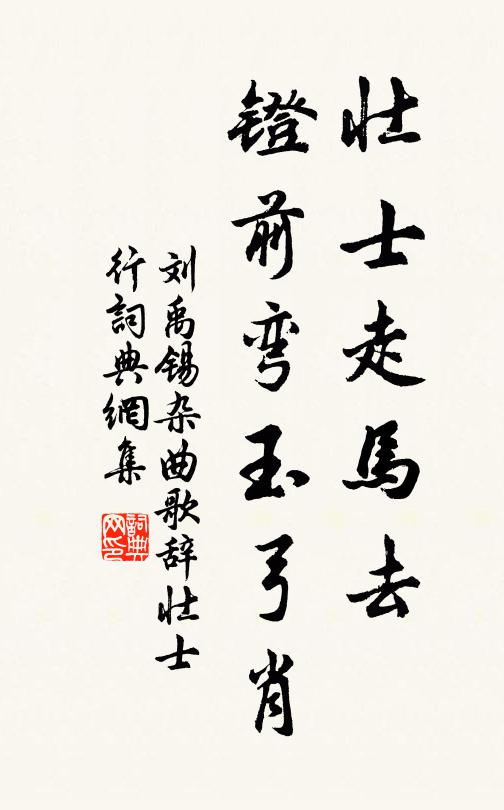 壮士走馬去
镫前弯玉弓肖
刘禹锡杂曲歌辞壮士
行詞典網集
詞典
网印